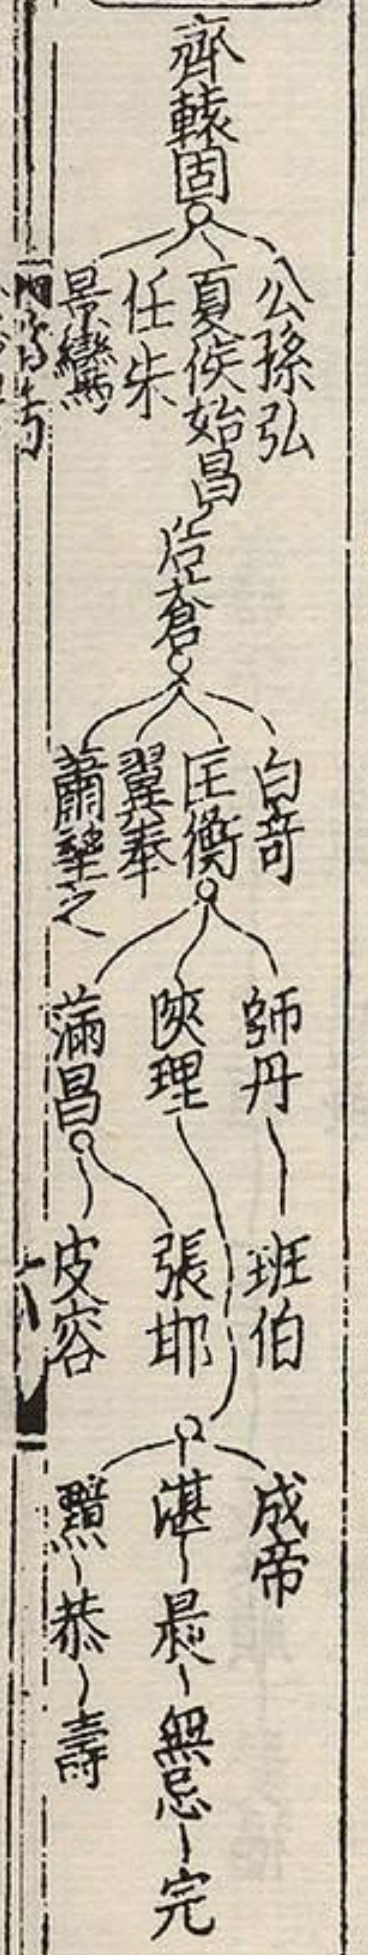 齊轅固
公孫弘
夏侯始昌
任朱
景鸞
后倉
白奇
匡衡
翼奉
蕭望之
師丹
陝理
滿昌
班伯
張邯
皮容
成帝
湛
晨
無忌
完
黯
恭
壽